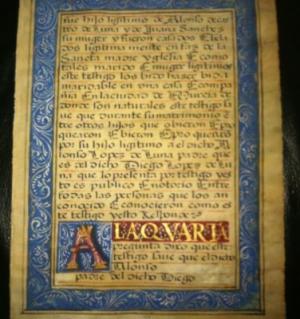 fue hijo ligitimo de Alonso de cas
tro de luna y de Juana Sanches
su muger y fueron casados E bela
dos ligitima mente en faz de la
Sancta madre yglesia E como
tales marido E muger ligitimos
este testigo los bido hazer bida
maridable en una casa E compa
ñia En la ciudad de Murcia de
donde son naturales este testigo sa
ue que durante su matrimonio E
tre otros hijos que obieron E pro
quearon E bieron E procquearo
por su hijo ligitimo a el dicho A
lonso Lopez de Luna padre que
es del dicho Diego Lopez de lu
na que lo presenta por testigo y es
to es publico E notorio Entre
todas las personas que los an
conocido E conocieron como es
te testigo y esto Responde
A LA QVARTA
pregunta dixo que este
testigo saue que el dicho
Alonso
padre del dicho Diego